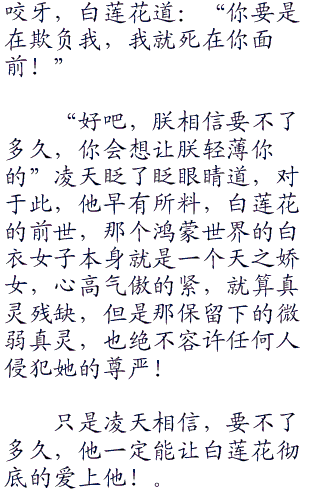 咬牙，白莲花道：“你要是
在欺负我，我就死在你面
前！”
“好吧，朕相信要不了
多久，你会想让朕轻薄你
的”凌天眨了眨眼睛道，对
于此，他早有所料，白莲花
的前世，那个鸿蒙世界的白
衣女子本身就是一个天之娇
女，心高气傲的紧，就算真
灵残缺，但是那保留下的微
弱真灵，也绝不容许任何人
侵犯她的尊严！
只是凌天相信，要不了
多久，他一定能让白莲花彻
底的爱上他！。